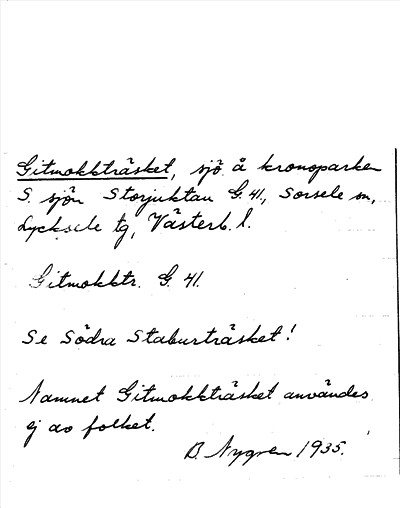 Gitmokkträsket, sjö å kronoparken
S. sjön Storjuktan G. 41., Sorsele sn,
Lycksele tg, Västerb. l.
Gitmokktr. G. 41.
Se Södra Staburträsket!
Namnet Gitmokkträsket användes
ej av folket.
B. Nygren 1935.